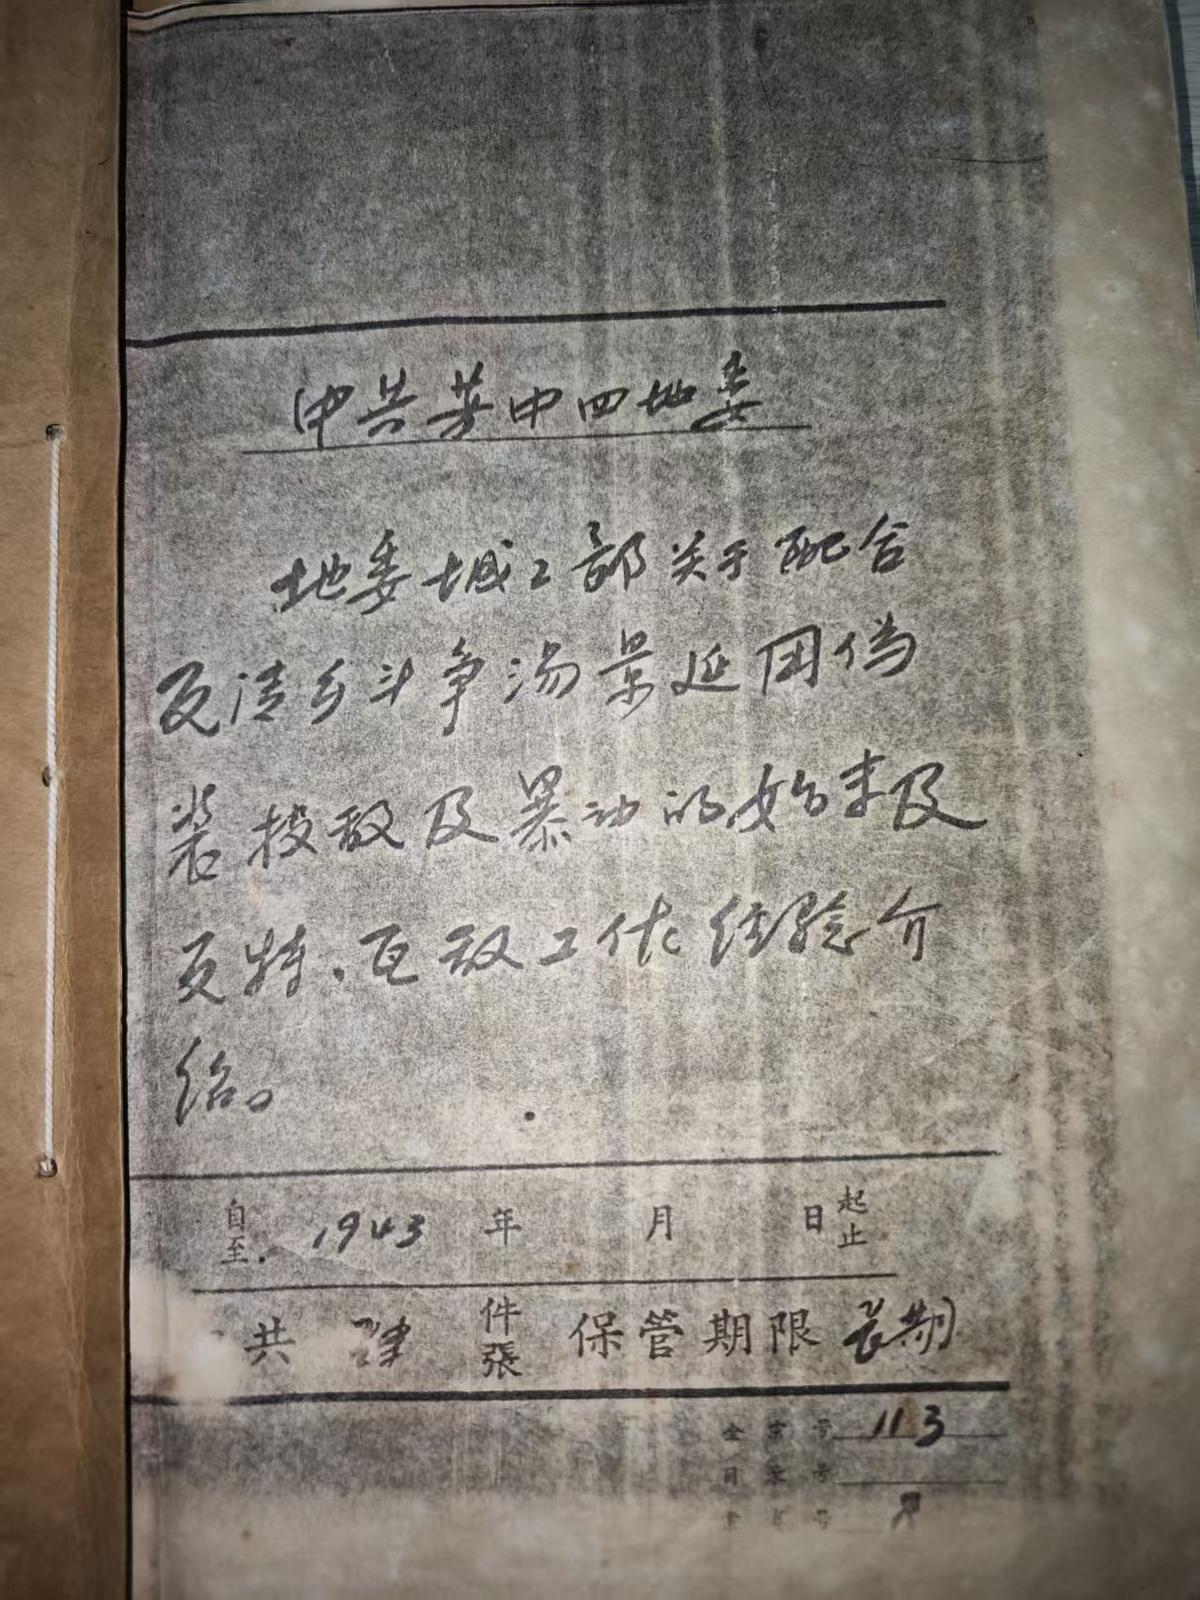 中共苏中四地委
地委城工部关于配合
反清乡斗争汤景延团伪
装投敌及暴动的始末及
反特、瓦敌工作经验介
绍。
自
至 1943 年 月 日 起
止
共 肆 件
張 保管期限 长期
全宗号 113
目录号
案卷号 8